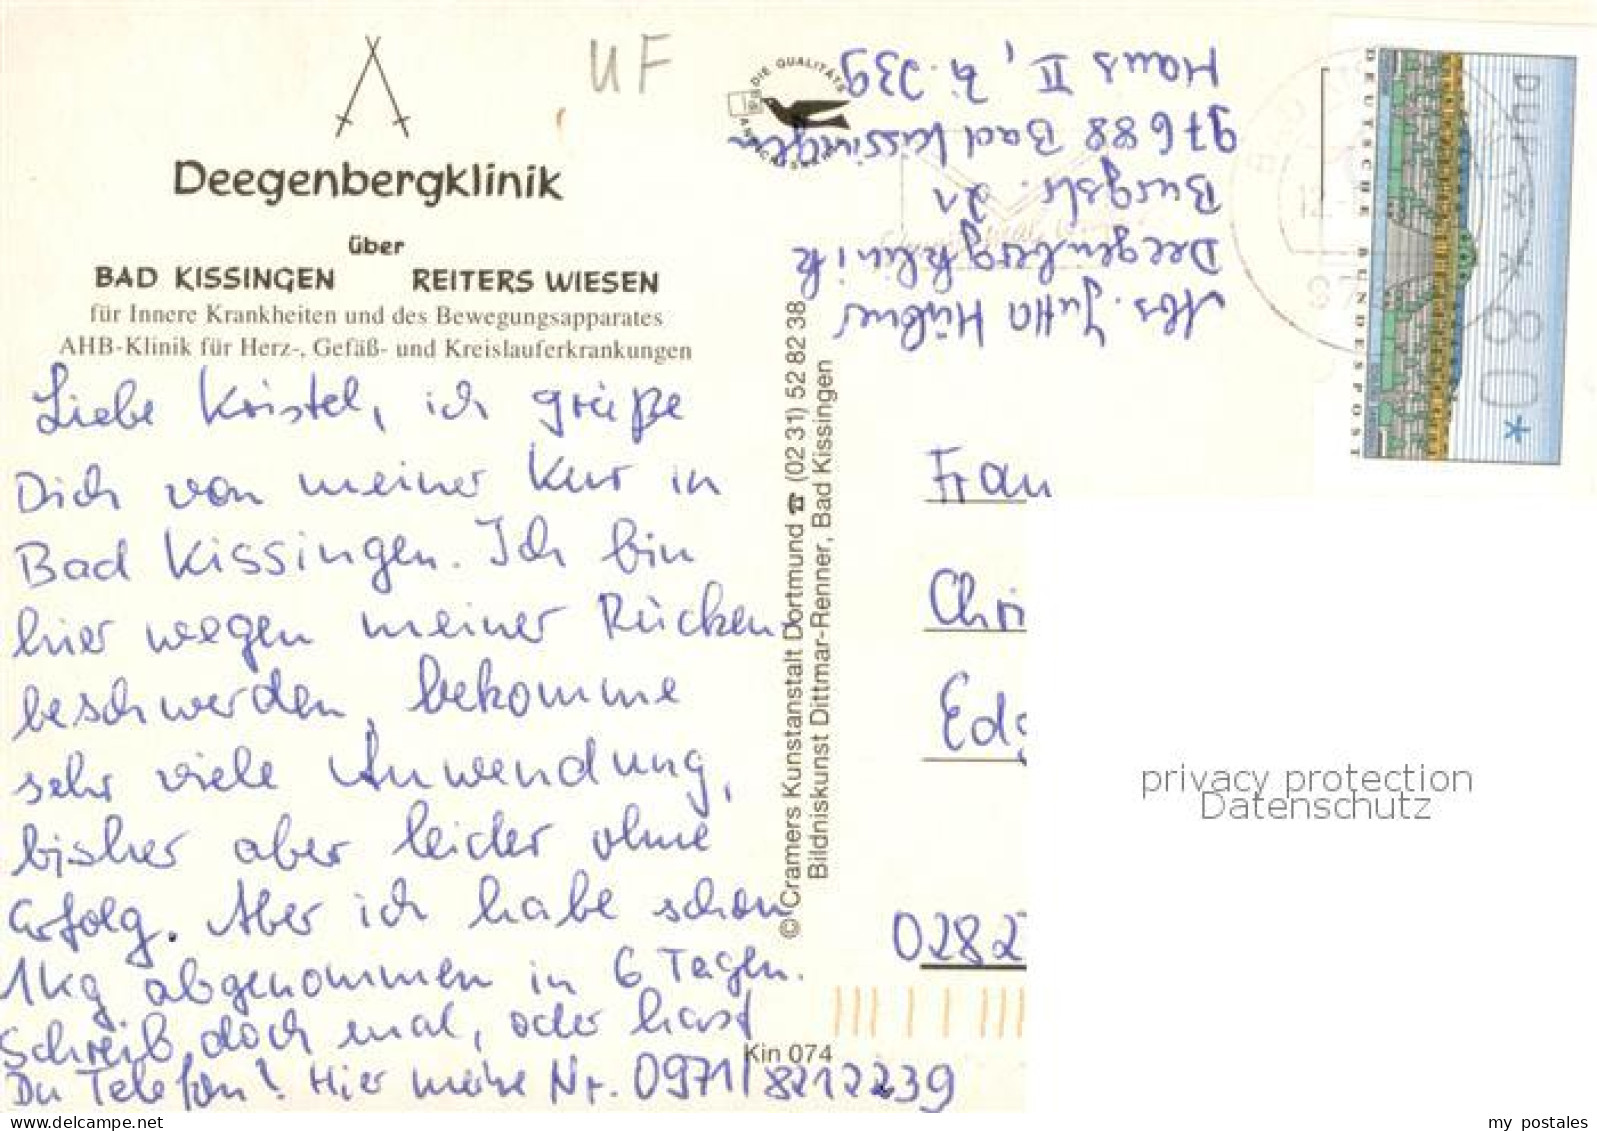 UF
Deegenbergklinik
über
BAD KISSINGEN REITERS WIESEN
für Innere Krankheiten und des Bewegungsapparates
AHB-Klinik für Herz-, Gefäß- und Kreislauferkrankungen
Liebe Kristel, ich grüße
Dich von meiner Kur in
Bad Kissingen. Ich bin
hier wegen meiner Rücken-
beschwerden, bekomme
sehr viele Anwendung,
bisher aber leider ohne
Erfolg. Aber ich habe schon
1kg abgenommen in 6 Tagen.
Schreib doch mal, oder hast
Du Telefon? Hier meine Nr. 0971/8212239
© Cramers Kunstanstalt Dortmund ☎ (02 31) 52 82 38
Bildniskunst Dittmar-Renner, Bad Kissingen
Kin 074
DIE QUALITÄTS
Abs. Jutta Hübner
Deegenbergklinik
Burgstr. 21
97688 Bad Kissingen
Haus II, Zi. 239
DEUTSCHE BUNDESPOST
80
Frau
Chri
Edg
0282
privacy protection
Datenschutz
my postales